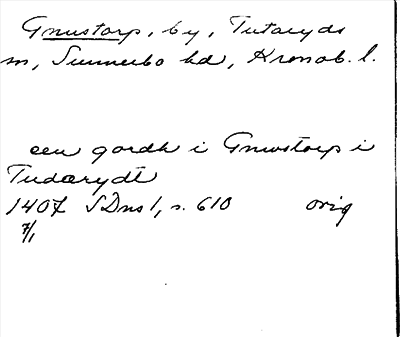 Gnustorp, by, Tutaryds
sn, Sunnerbo hd, Kronob. l.
een gardh i Gnwstorp i
Tudarydt
1407 SDns 1, s. 610 orig
7/1